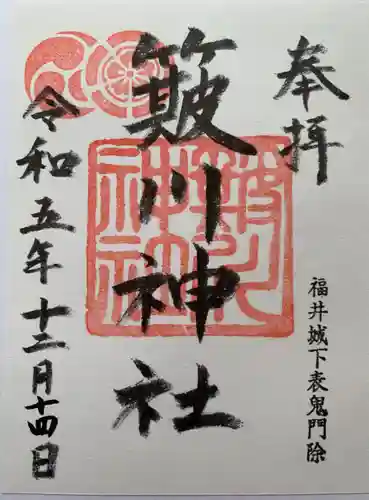 奉拝
福井城下表鬼門除
簸川神社
簸川神社
令和五年十二月十四日